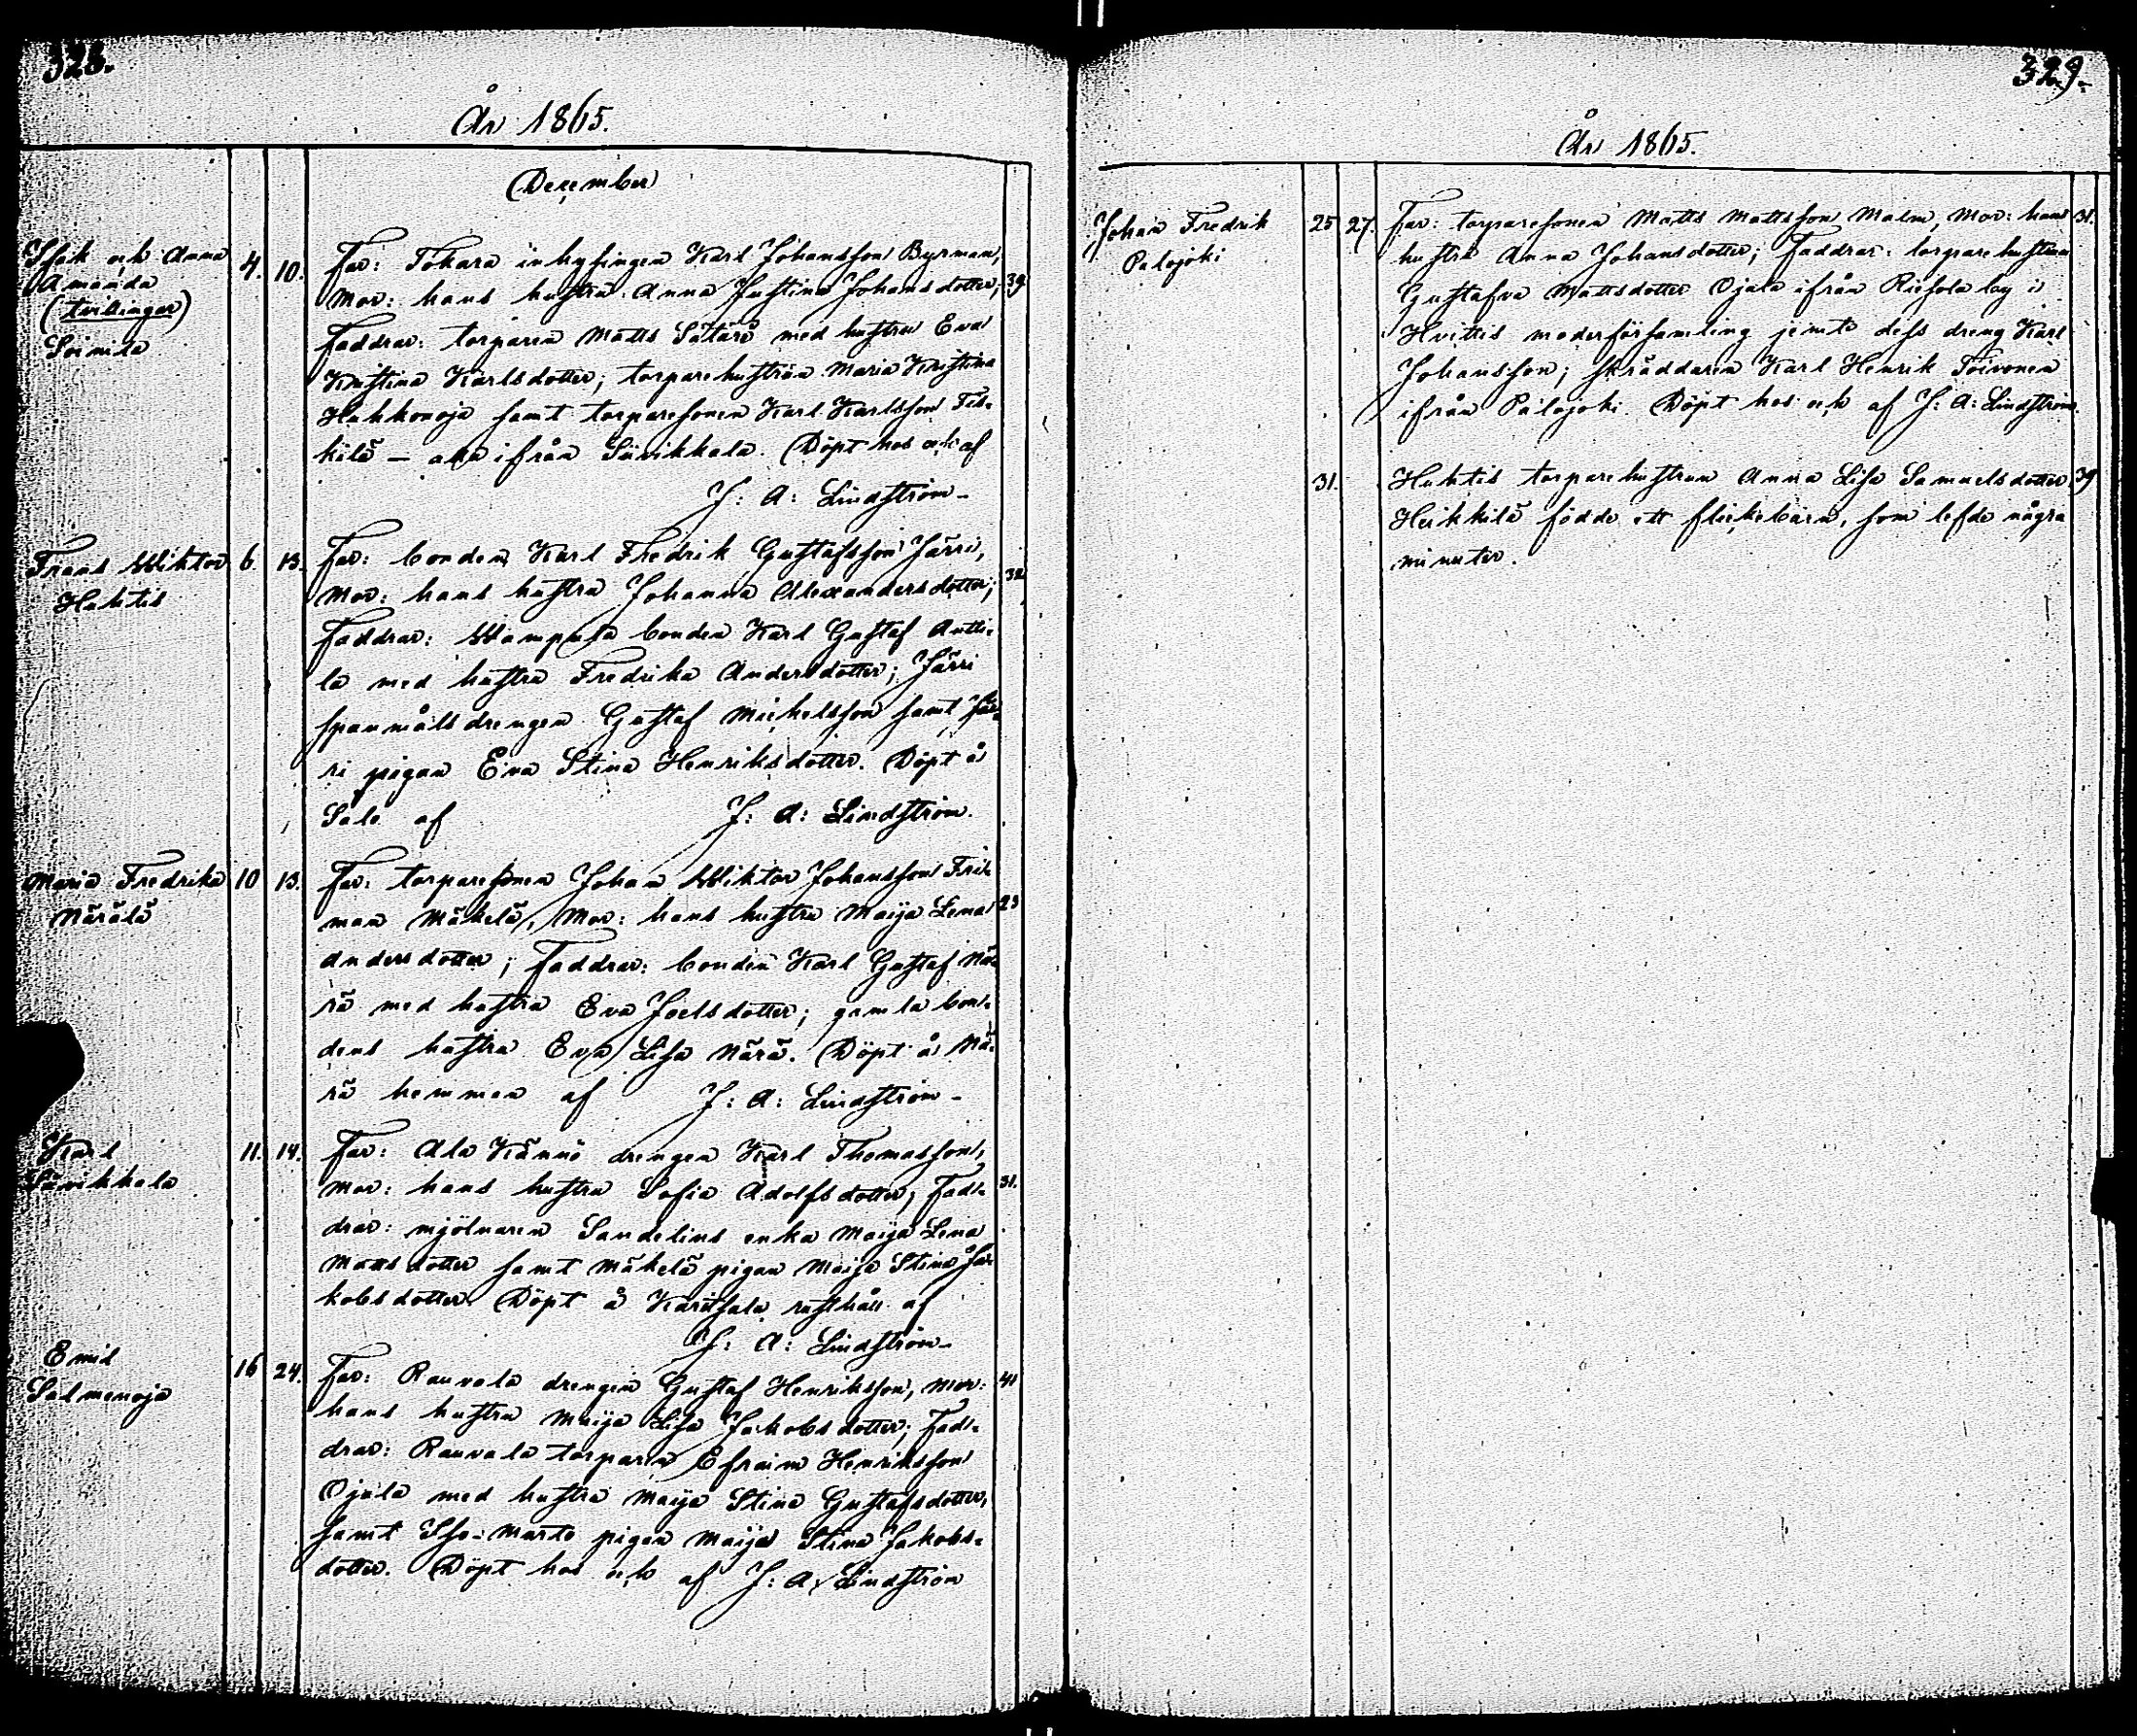 328.
År 1865.
December
Isak och Anna 4. 10. Far: Tokara inhysingen Karl Johansson Byrman,
Amanda Mor: hans hustru Anna Justina Johansdotter; 39
(tvillingar) Faddrar: torparen Matts Sätärä med hustru Eva
Soinila Kristina Karlsdotter; torparehustrun Maria Kristina
Hukkonoja samt torparesonen Karl Karlsson
kilä — alla ifrån Suvikkala. Döpt hos och af
J: A: Lindström
Frans Wiktor 6. 13. Far: bonden Karl Fredrik Gustafsson Järri,
Huhtis Mor: hans hustru Johanna Alexandersdotter; 32
Faddrar: Wampula bonden Karl Gustaf Antti-
la med hustru Fredrika Andersdotter; Järri
spanmålsdrengen Gustaf Michelsson samt Jär-
ri pigan Eva Stina Henriksdotter. Döpt å
Salo af J: A: Lindström.
Maria Fredrika 10 13. Far: torparesonen Johan Wiktor Johansson Fri-
Närälä man Mäkelä, Mor: hans hustru Maija Lena 23
Andersdotter; Faddrar: bonden Karl Gustaf Nä-
rä med hustru Eva Joelsdotter; gamla bon-
dens hustru Eva Lisa Närä. Döpt å Nä-
rä hemman af J: A: Lindström
Karl 11. 14. Far: Ala Kännö drengen Karl Thomasson,
Suvikkala Mor: hans hustru Sofia Adolfsdotter; Fad- 31.
drar: mjölnaren Sandelins enka Maija Lena
Mattsdotter samt Mäkelä pigan Maija Stina Ja-
kobsdotter. Döpt å Karitsala rusthåll af
J: A: Lindström
Emil 16 24. Far: Rauvola drengen Gustaf Henriksson, Mor: 41
Salmenoja hans hustru Maija Lisa Jakobsdotter; Fad-
drar: Rauvola torparen Efraim Henriksson
Ojala med hustru Maija Stina Gustafsdotter,
samt Iso-Murto pigan Maija Stina Jakobs-
dotter. Döpt hos och af J: A: Lindström
329.
År 1865.
Johan Fredrik 25 27. Far: torparesonen Matts Mattsson Malm, Mor: hans 31.
Palojoki hustru Anna Johansdotter; Faddrar: torparehustrun
Gustafva Mattsdotter Ojala ifrån Riesola by i
Hvittis moderförsamling jemte dess dreng Karl
Johansson; skräddaren Karl Henrik Toivonen
ifrån Palojoki. Döpt hos och af J: A: Lindström.
31. Huhtis torparehustrun Anna Lisa Samuelsdotter 39
Heikkilä födde ett flickebarn, som lefde några
minuter.